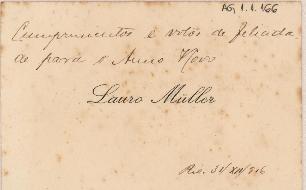 AG, 1.1.166
Cumprimentos e votos de felicida
de para o Anno Novo
Lauro Müller
Rio. 31/XII/916